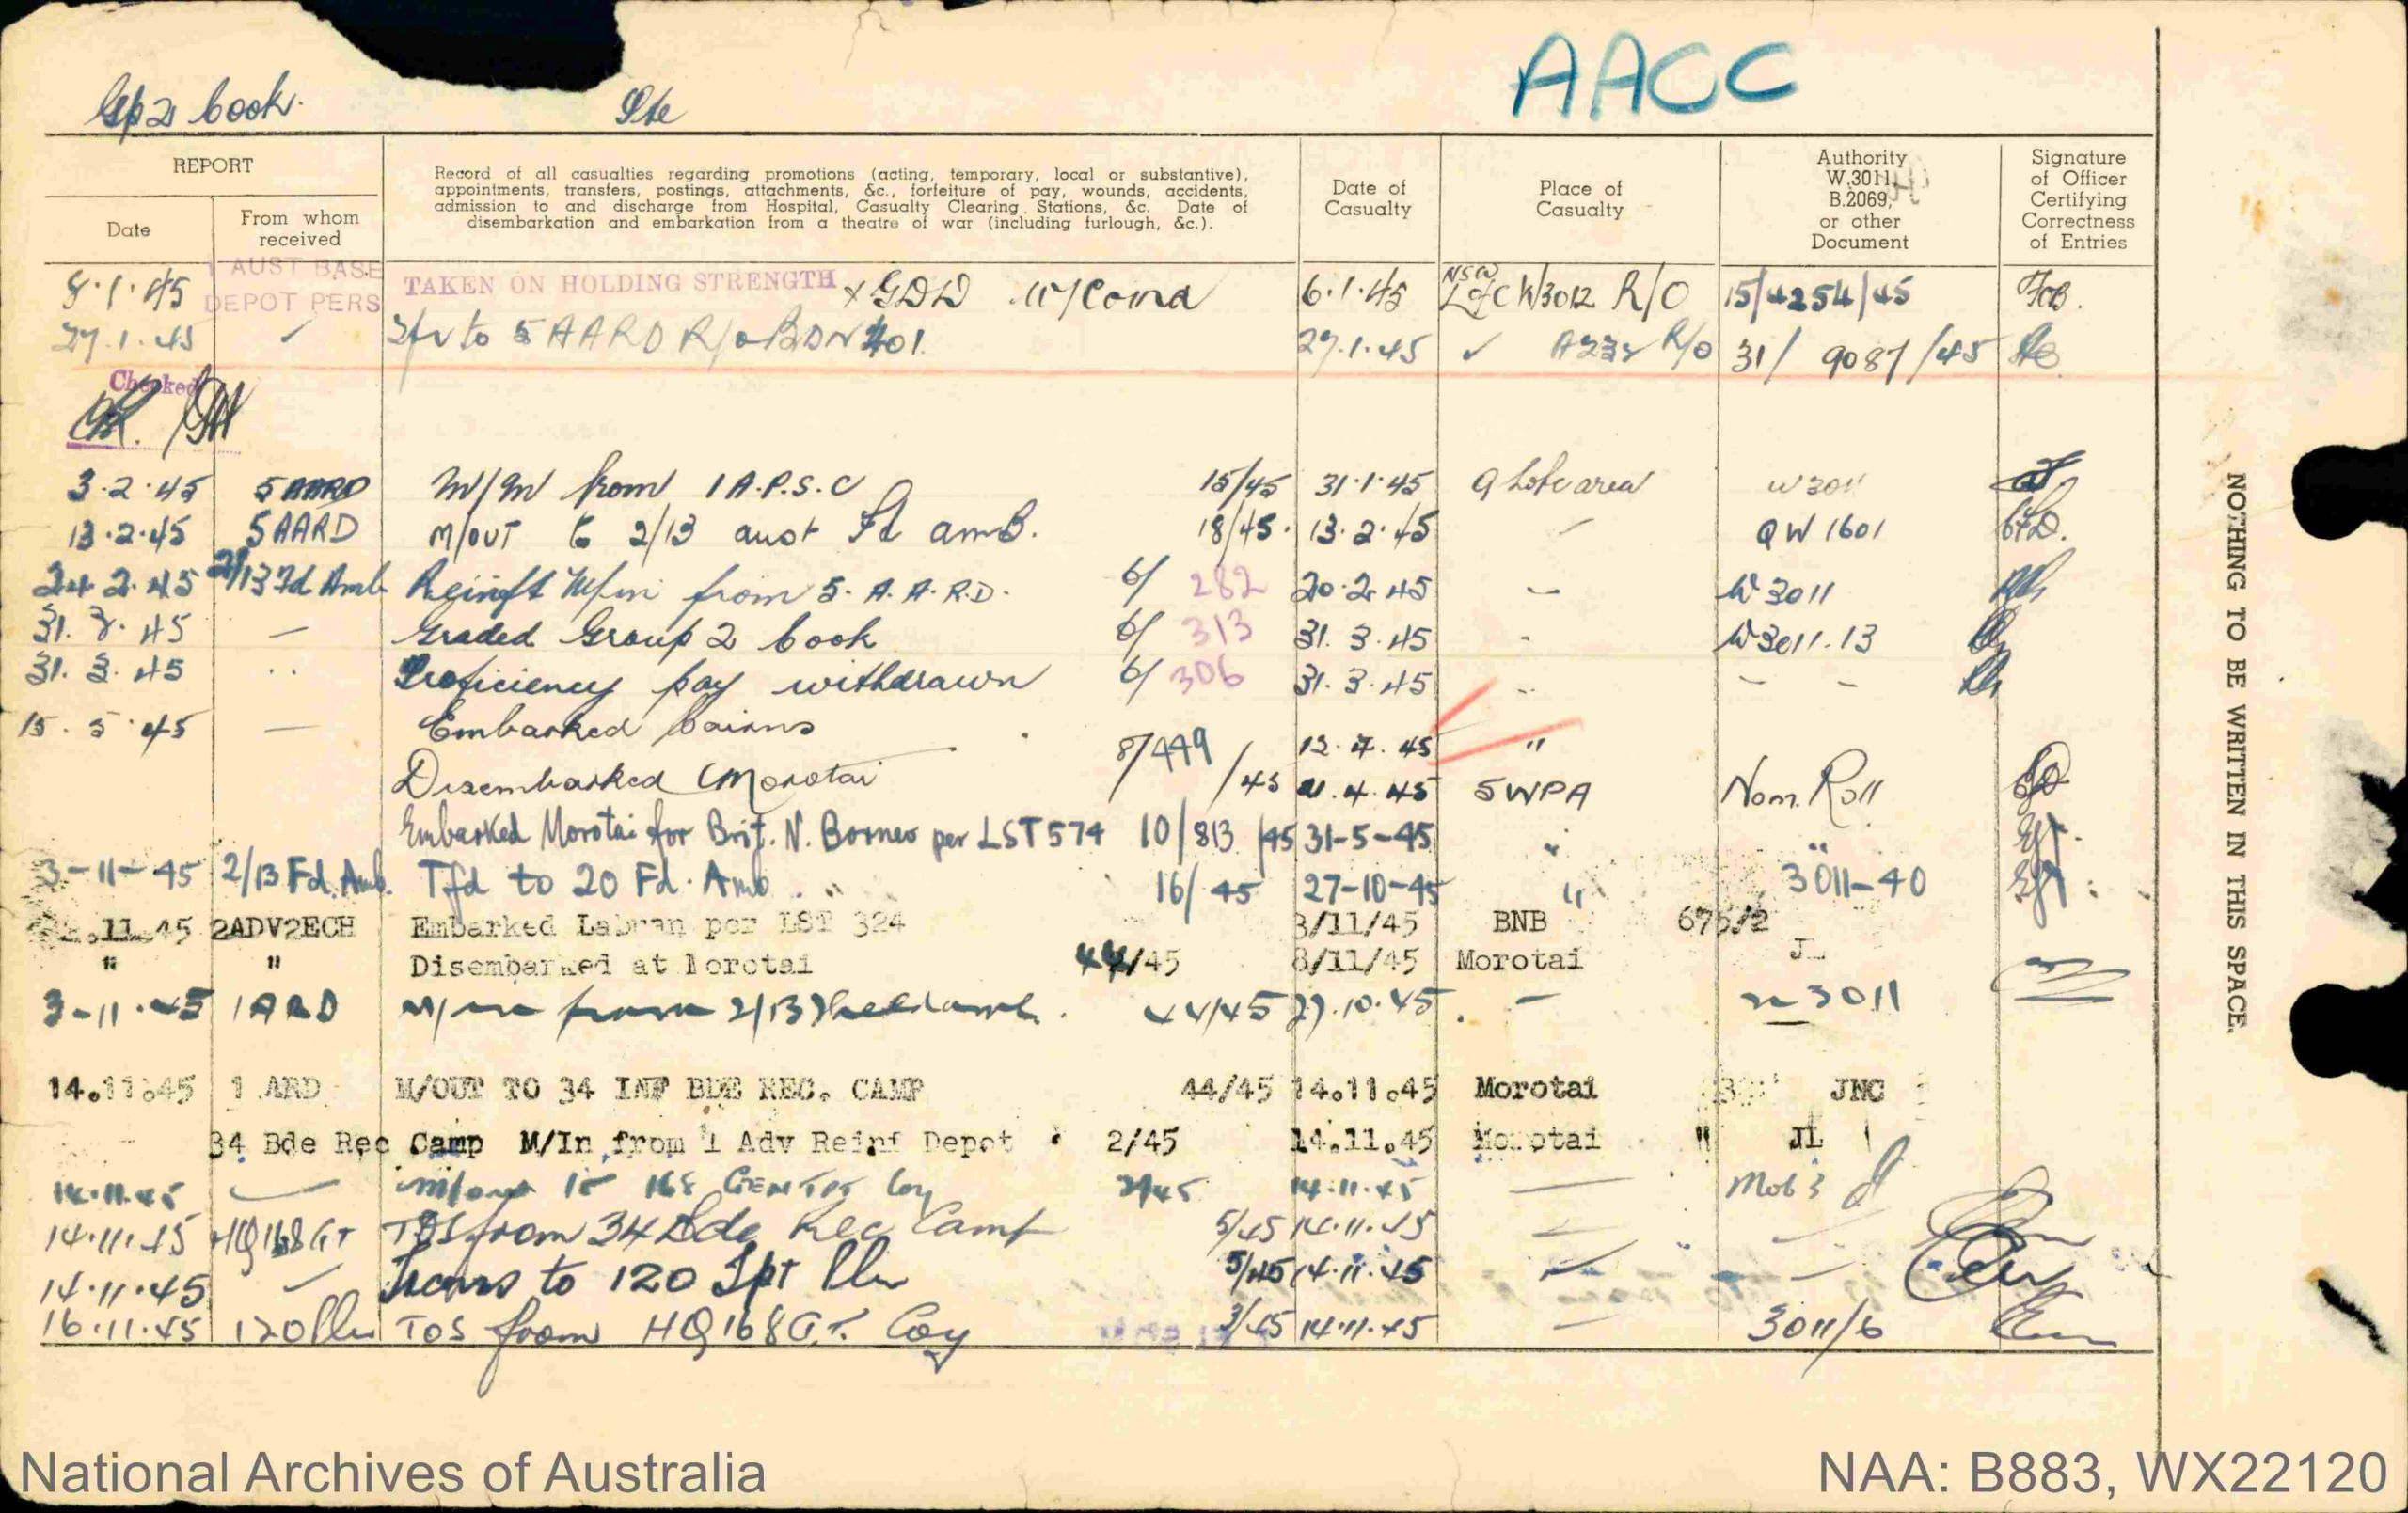 AACC
Gp 2 cook. Pte
REPORT
Date
From whom received
Record of all casualties regarding promotions (acting, temporary, local or substantive),
appointments, transfers, postings, attachments, &c., forfeiture of pay, wounds, accidents,
admission to and discharge from Hospital, Casualty Clearing Stations, &c. Date of
disembarkation and embarkation from a theatre of war (including furlough, &c.).
Date of Casualty
Place of Casualty
Authority W.3011, B.2069, or other Document
Signature of Officer Certifying Correctness of Entries
8.1.45 1 AUST BASE DEPOT PERS TAKEN ON HOLDING STRENGTH x GDD 6.1.45 NSW L of C W3012 R/O 15/4254/45
27.1.45 to 5 AARD R/O 27.1.45 R/O 31/ 9087/45
Checked
3.2.45 5 AARD M/In from 1 A.P.S.C 15/45 31.1.45 Q L of C area W3011
13.2.45 5 AARD M/OUT to 2/13 Aust Fd Amb. 18/45 13.2.45 QW 1601
24.2.45 2/13 Fd Amb Reinft M/in from 5. A.A.R.D. 6/ 282 20.2.45 W3011
31.3.45 Graded Group 2 cook 6/ 313 31.3.45 W3011.13
31.3.45 Proficiency pay withdrawn 6/ 306 31.3.45
15.5.45 Embarked Cairns 8/449 /45 12.4.45 "
Disembarked Morotai 21.4.45 SWPA Nom. Roll
Embarked Morotai for Brit. N. Borneo per LST 574 10/813/45 31-5-45 " "
3-11-45 2/13 Fd. Amb. Tfd to 20 Fd. Amb. 16/45 27-10-45 " 3011-40
.11.45 2ADV2ECH Embarked Labuan per LST 324 3/11/45 BNB 675/2
" " Disembarked at Morotai 44/45 8/11/45 Morotai
3-11-45 1 ARD M/in from 2/13 Field Amb. 44/45 27.10.45 3011
14.11.45 1 ARD M/OUT TO 34 INF BDE REC. CAMP 44/45 14.11.45 Morotai JNC
34 Bde Rec Camp M/In from 1 Adv Reinf Depot 2/45 14.11.45 Morotai " JL
14.11.45 m/out to 168 Gen Tpt Coy 2/45 14.11.45 Mob 3
14.11.45 HQ 168 GT TOS from 34 Bde Rec Camp 5/45 14.11.45
14.11.45 Trans to 120 Tpt Pln 5/45 14.11.45
16.11.45 120 Pln TOS from HQ 168 G.T. Coy 3/45 14.11.45 3011/6
NOTHING TO BE WRITTEN IN THIS SPACE.
National Archives of Australia
NAA: B883, WX22120